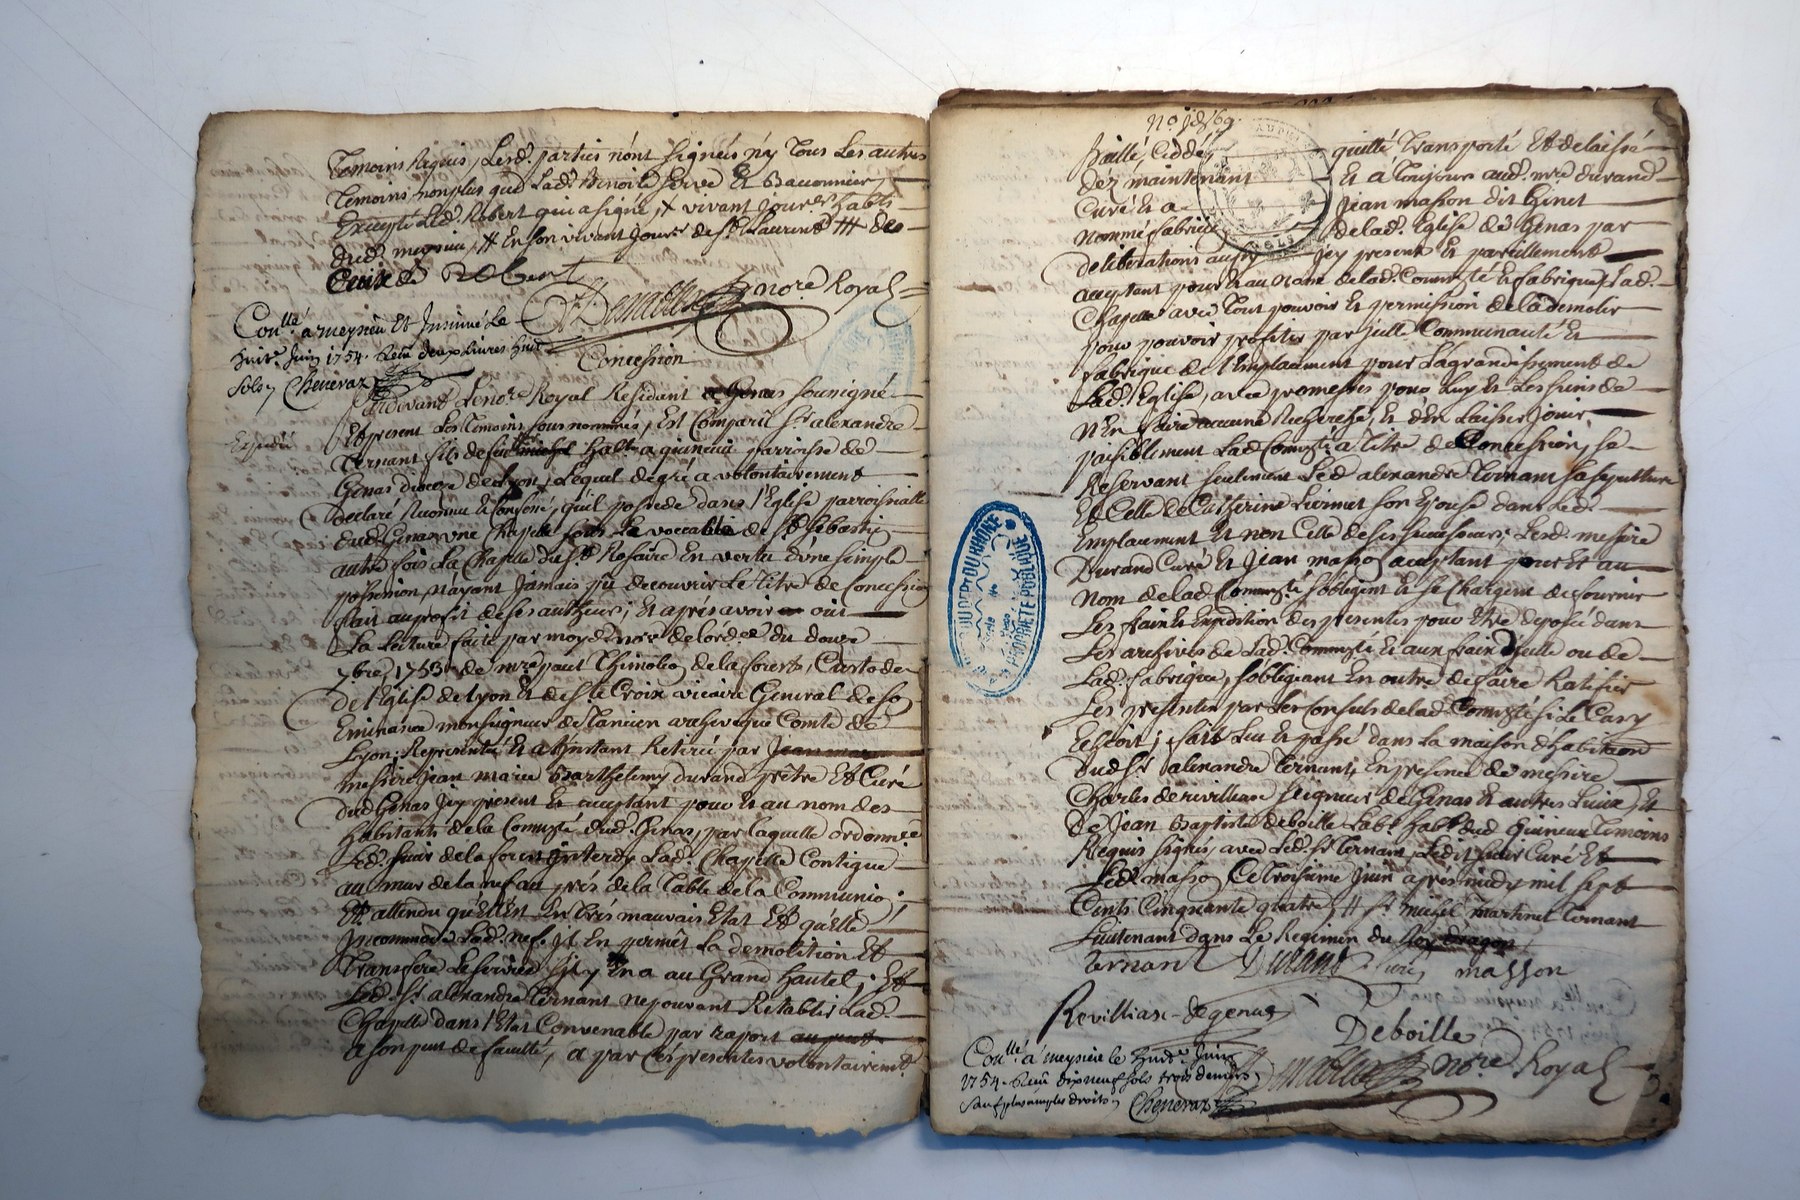 Temoins Requis, Lesd. parties n'ont signées ny Tous Les autres
Temoins non plus que Lad. Benoite Serve Et Baconnier
Excepté Led. Robert qui a signé, + vivant Jour.er habt.
dud. meysieu, # En son vivant Jour.r de St. Laurent ## des
Robert
no.re Royal
Con.llé a meysieu Et Insinué Le
huit.e Juin 1754. Receu deux Livres huit
sols, Cheneraz
Concession
Pardevant Le no.re Royal Residant a Genas soussigné
Expedié
Et present Les Temoins sous nommés, Est Comparu Sr. alexandre
Ternant fils de feu michel habt. a quinieu parroisse de
Genas diocese de Lyon, Lequel de gré a volontairement
declaré Reconnu Et Confessé, qu'il possede dans l'Eglise parroissialle
dud. Genas une Chapelle sous La vocable de St. Sebastien
autre fois La Chapelle du St. Rosaire En vertu d'une simple
possession n'ayant Jamais pû decouvrir Le titre de Concession
fait au profit de ses autheurs; Et aprés avoir oui
La Lecture faite par moyd. no.re de L'ord.ce du douze
9bre 1753 de m.re paul Thimoleo, de la forest, Custode
de l'Eglise de Lyon Et de Ste Croix vicaire General de so
Eminance monseigneur de Tancien archeveque Comte de
Lyon; Representée Et a L'instant Retirée par
messire jean marie Barthelemy durand prêtre Et Curé
dud. Genas Jcy present Et acceptant pour Et au nom des
habitants de la Comm.té dud. Genas, par laquelle ordonn.ce
Led. Sieur de la forest interdy Lad. Chapelle Contigue
au mur de la nef au prés de la Table de la Communio;
Et attendu qu'Elle Est En trés mauvais Etat Et qu'Elle
Jncommode Lad. nef, jl En permêt La demolition Et
Transfere Le service s'il y En a au Grand hautel; Et
Led. Sr. alexandre Ternant ne pouvant Retablir Lad.
Chapelle dans l'Etat Convenable par raport
a son peu de faculté, a par Ces presentes volontairem.t
N.o
Baillé, Ceddé, quitté Transporté Et delaissé
dez maintenant Et a Toujours aud. m.re durand
Curé Et a Jean masson dit Ginet
nommé fabricie de lad. Eglise de Genas par
deliberations Jcy present Et pareillement
acceptant pour Et au nom de lad. Comm.té Et fabrique, Lad.
Chapelle avec Tout pouvoir Et permission de la demolir
pour pouvoir profiter par Jcelle Communauté Et
fabrique de l'Emplacement pour L'agrandissement de
Lad. Eglise, avec promesses pour Luy Et Les siens de
n'En faire aucune Recherche, Et d'En Laisser Jouir
paisiblement Lad. Comm.té a titre de Concession, se
Reservant seulement Led. alexandre Ternant sa sepulture
Et Celle de Catherine son Epouse dans Led.
Emplacement Et non Celle de ses successeurs; Lesd. messire
Durand Curé Et Jean masson acceptant pour Et au
nom de lad. Comm.té s'obligent Et se Chargent de fournir
Les frais Et Expedition des presentes pour Etre deposée dans
Les archives de Lad. Comm.té Et aux frais d'Jcelle ou de
Lad. fabrique, s'obligeant En outre de faire Ratifier
Les presentes par Les Consuls de lad. Comm.té si Le Cas y
Echoit; fait Lu Et passé dans La maison d'habitation
dud. Sr alexandre Ternant, En presence de messire
Charles de revilliase seigneur de Genas Et autres Lieux, Et
De Jean Baptiste deboille Lab.r habt. dud. Quinieu Temoins
Requis signés, avec Led. Sr Ternant, Ledit sieur Curé Et
Led. masson Ce Troisieme Juin aprés midy mil sept
Cents Cinquante quatre, # Sr michel martinet Ternant
Lieutenant dans Le Regiment du
Ternant Durand Curé masson
Revilliase-degenas
Deboille
no.re Royal
Con.llé a meysieu le huit.e Juin
1754. Receu dix neuf sols trois deniers
sauf plus amples droits, Cheneraz
PROPRIÉTÉ PUBLIQUE